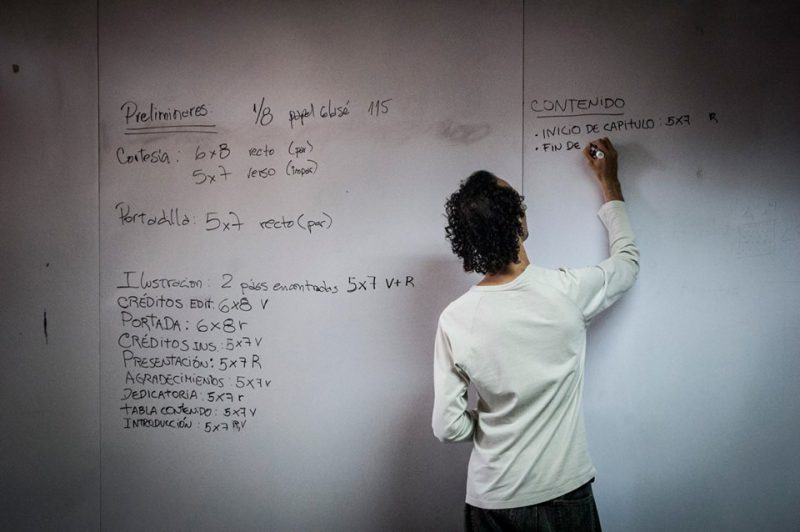 Preliminares 1/8 papel Glasé 115
Cortesía : 6x8 recto (par)
5x7 verso (impar)
Portadilla: 5x7 recto (par)
Ilustracion: 2 págs encontradas 5x7 V+R
CRÉDITOS EDIT. 6x8 V
PORTADA: 6x8 r
CRÉDITOS INS. : 5x7 V
PRESENTACIÓN: 5x7 R
AGRADECIMIENOS : 5x7 v
DEDICATORIA : 5x7 r
TABLA CONTENIDO : 5x7 V
INTRODUCCIÓN : 5x7 R,V
CONTENIDO
• INICIO DE CAPITULO : 5x7 R
• FIN DE